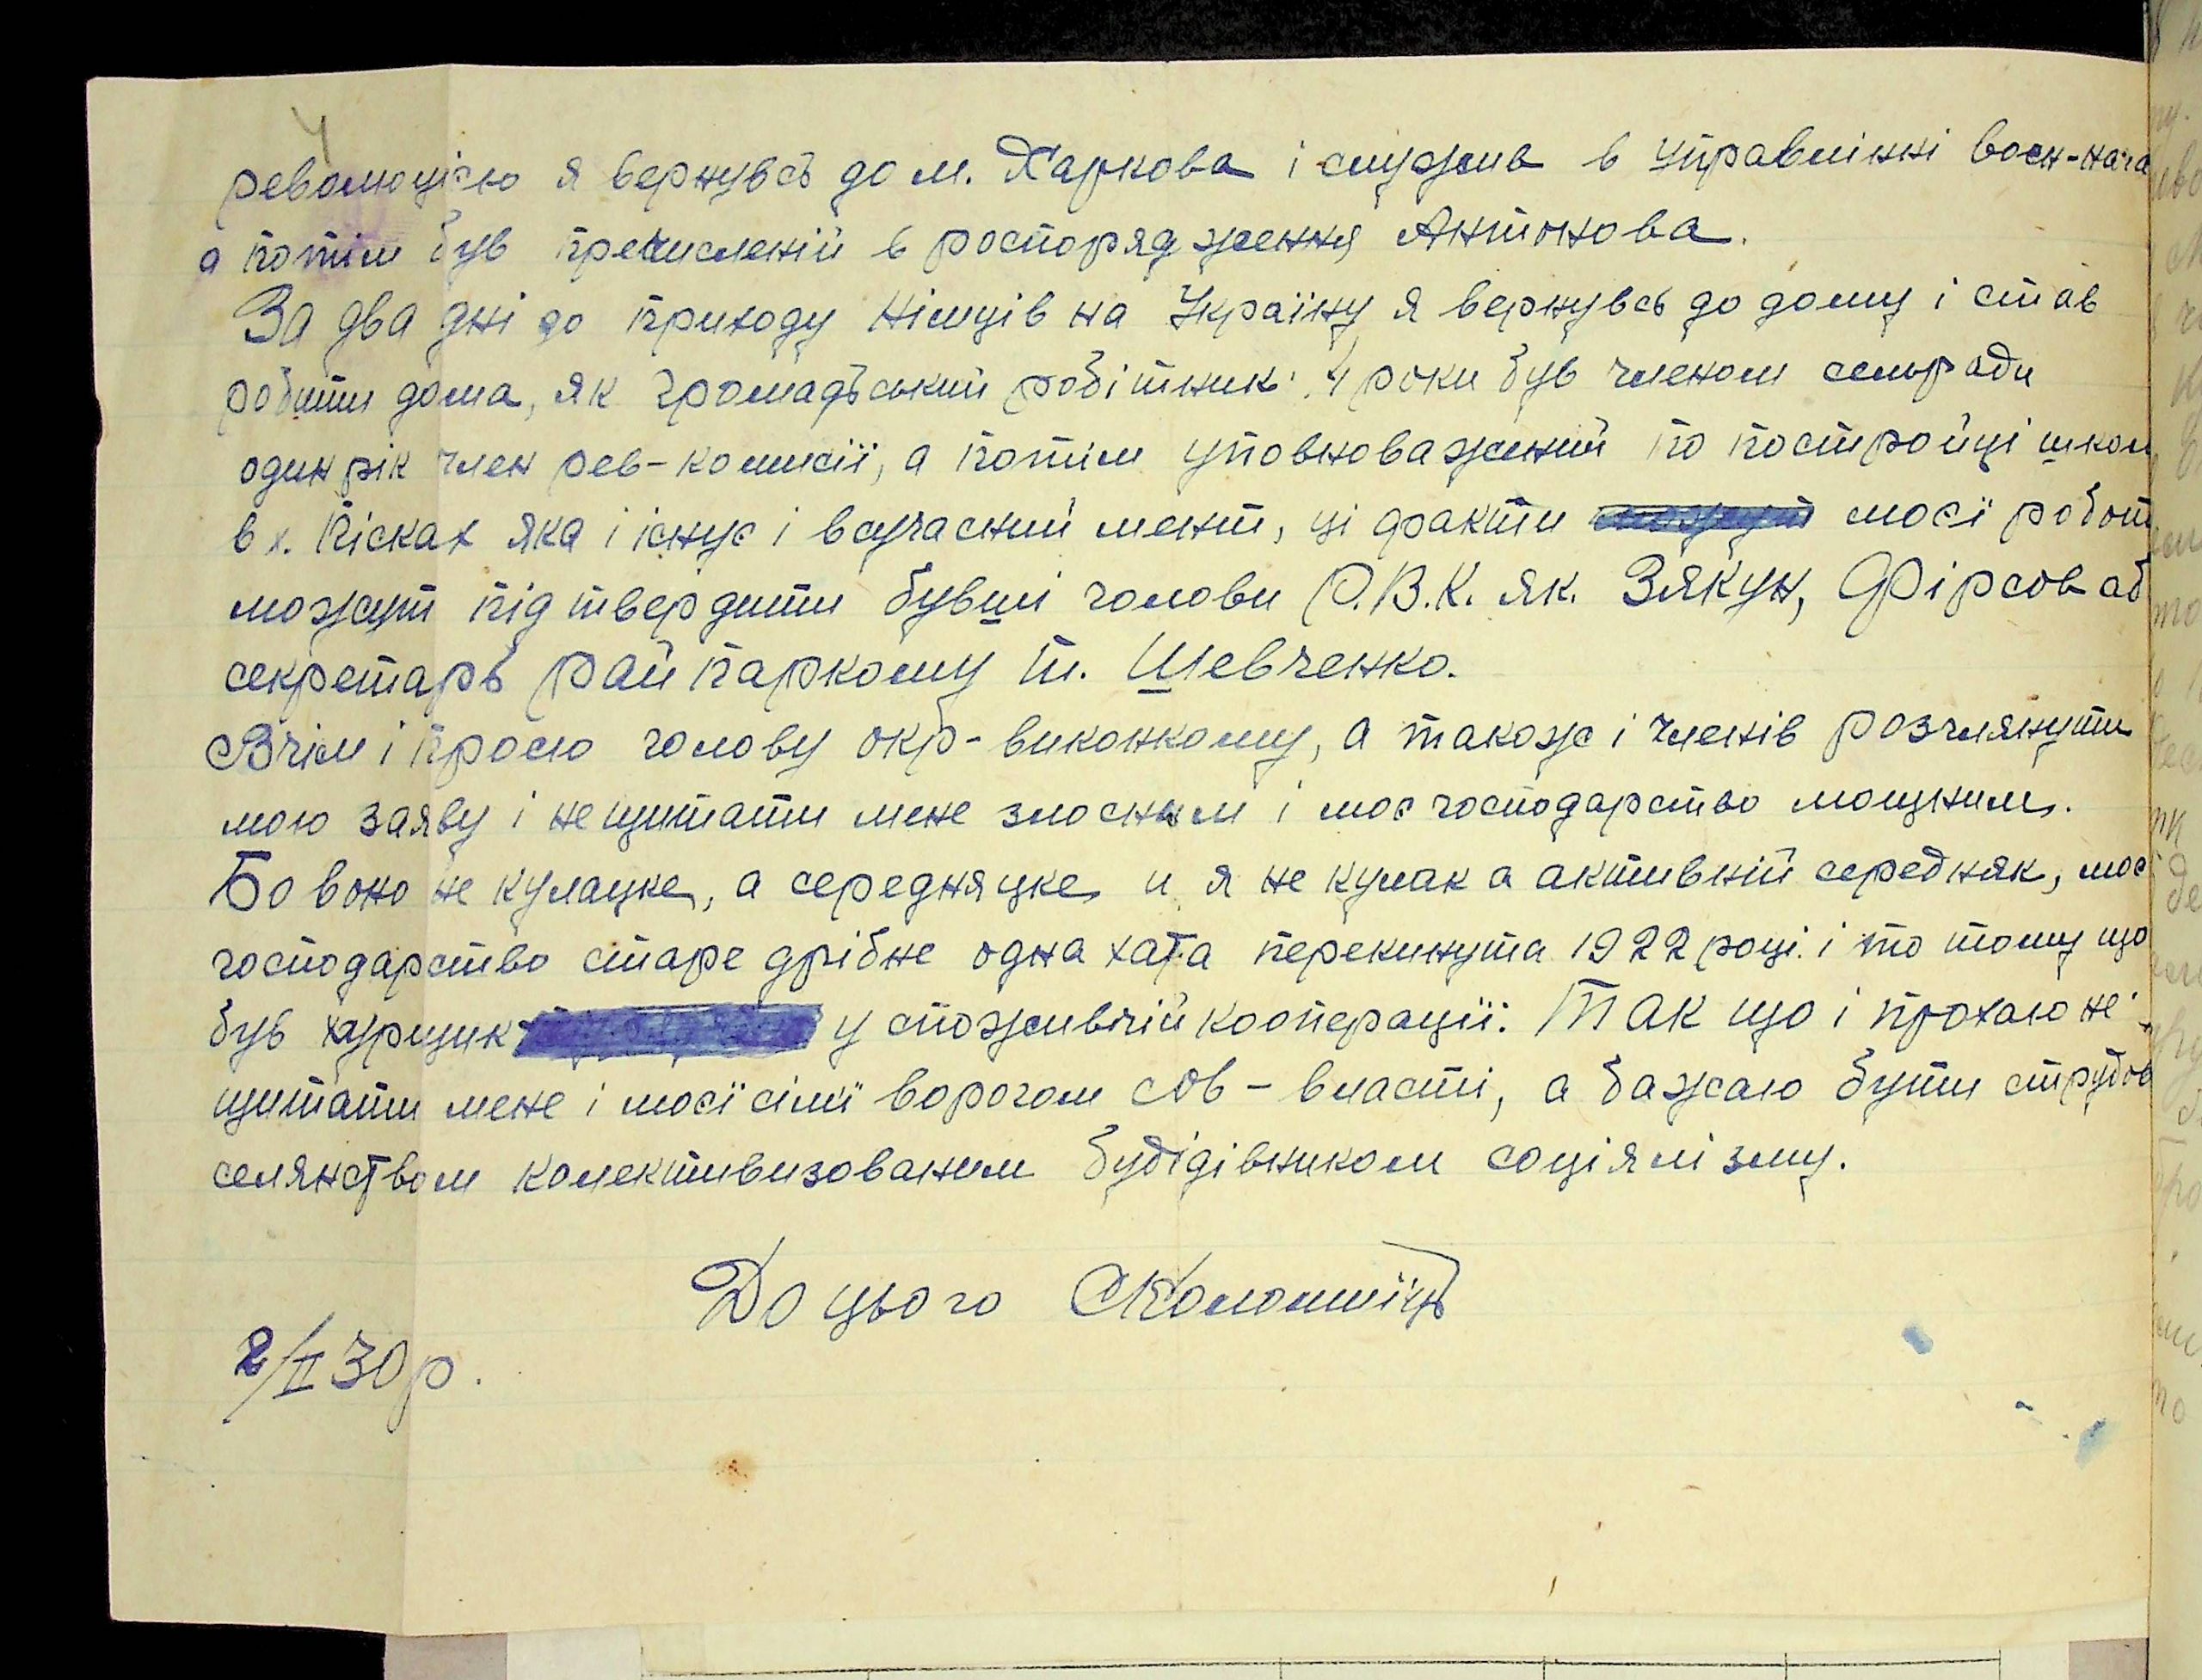 4
революцією я вернувсь до м. Харкова і служив в управлінні воєн-нача
а потім був пречисленій в роспорядження Антонова.
За два дні до приходу німців на Україну я вернувсь до дому і став
робити дома, як громадський робітник. 4 роки був членом сельради
один рік член рев-комисії, а потім уповноважиний по постройці школ
в х. Пісках яка і існує і всучасний мент, ці факти моєї робот
можут підтвердити бувші голови Р.В.К. як. Зякун, Фірсов аб
секретарь райпаркому т. Шевченко.
Вчім і просю голову окр-виконкому, а також і членів розглянути
мою заяву і не щитати мене злосним і моє господарство мощним.
Бо воно не кулацке, а середняцке и я не кулак а активній середняк, моє
господарство старе дрібне одна хата перекинута 1922 році. і то тому що
був у споживчій кооперації. Так що і прохаю не
щитати мене і моєї сімї ворогом сов-власті, а бажаю бути струдов
селянством колективизованим будідівником соціялізму.
До цього СКоломиїць
2/II 30 р.